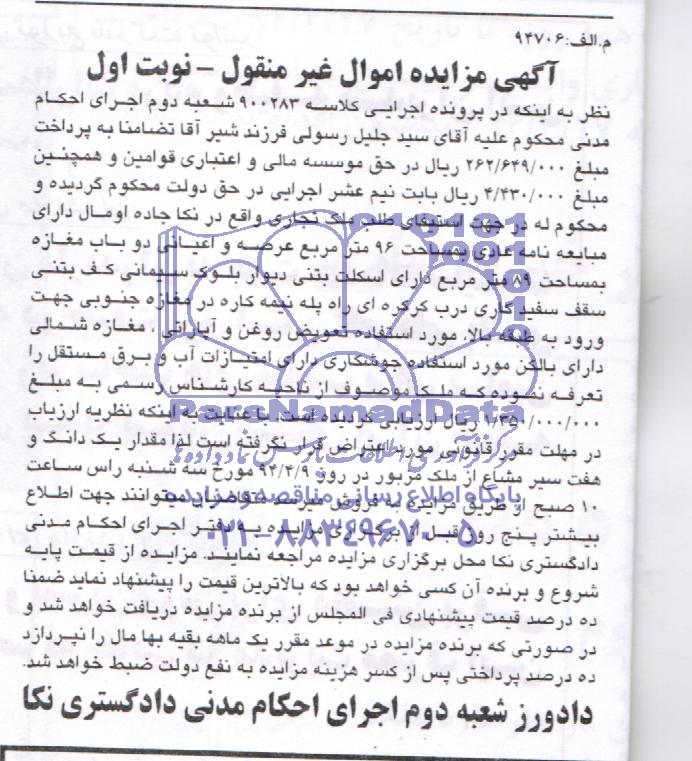 م.الف: ۹۴۷۰۶
آگهی مزایده اموال غیر منقول - نوبت اول
نظر به اینکه در پرونده اجرایی کلاسه ۹۰۰۲۸۳ شعبه دوم اجرای احکام
مدنی محکوم علیه آقای سید جلیل رسولی فرزند شیر آقا تضامنا به پرداخت
مبلغ ۲۶۲/۶۴۹/۰۰۰ ریال در حق موسسه مالی و اعتباری قوامین و همچنین
مبلغ ۴/۴۳۰/۰۰۰ ریال بابت نیم عشر اجرایی در حق دولت محکوم گردیده و
محکوم له در جهت استیفای طلب ملک تجاری واقع در نکا جاده اومال دارای
مبایعه نامه عادی بمساحت ۹۶ متر مربع عرصه و اعیانی دو باب مغازه
بمساحت ۸۹ متر مربع دارای اسکلت بتنی دیوار بلوک سیمانی کف بتنی
سقف سفید کاری درب کرکره ای راه پله نیمه کاره در مغازه جنوبی جهت
ورود به طبقه بالا، مورد استفاده تعویض روغن و آپاراتی، مغازه شمالی
دارای بالکن مورد استفاده جوشکاری دارای امتیازات آب و برق مستقل را
تعرفه نموده که ملک موصوف از ناحیه کارشناس رسمی به مبلغ
۱/۳۵۰/۰۰۰/۰۰۰ ریال ارزیابی گردیده است با عنایت به اینکه نظریه ارزیاب
در مهلت مقرر قانونی مورد اعتراض قرار نگرفته است لذا مقدار یک دانگ و
هفت سیر مشاع از ملک مزبور در روز ۹۴/۴/۹ مورخ سه شنبه راس ساعت
۱۰ صبح از طریق مزایده به فروش میرسد متقاضیان میتوانند جهت اطلاع
بیشتر پنج روز قبل از برگزاری مزایده به دفتر اجرای احکام مدنی
دادگستری نکا محل برگزاری مزایده مراجعه نمایند. مزایده از قیمت پایه
شروع و برنده آن کسی خواهد بود که بالاترین قیمت را پیشنهاد نماید ضمنا
ده درصد قیمت پیشنهادی فی المجلس از برنده مزایده دریافت خواهد شد و
در صورتی که برنده مزایده در موعد مقرر یک ماهه بقیه بها مال را نپردازد
ده درصد پرداختی پس از کسر هزینه مزایده به نفع دولت ضبط خواهد شد.
دادورز شعبه دوم اجرای احکام مدنی دادگستری نکا
ParsNamadData
مرکز فرآوری اطلاعات پارس نماد داده ها
پایگاه اطلاع رسانی مناقصه و مزایده
۰۲۱-۸۸۳۴۹۶۷۰-۵